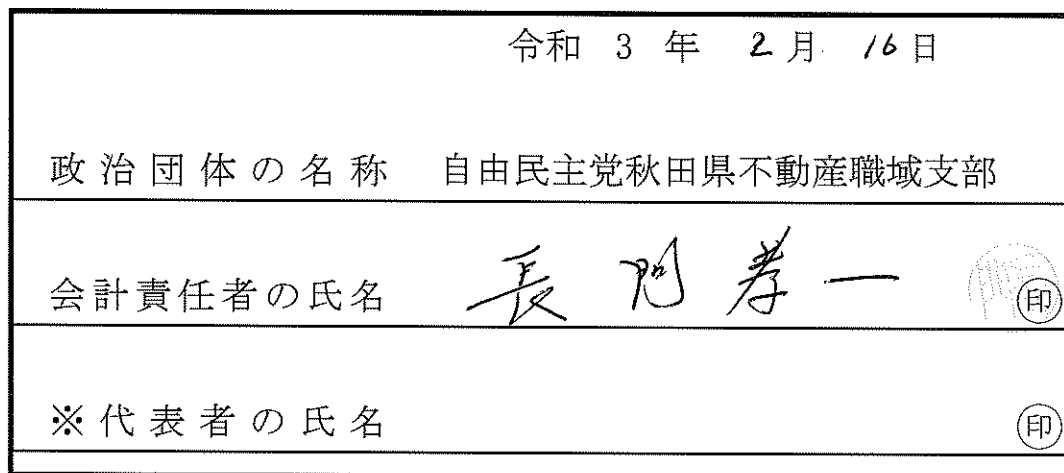 令和 3 年 2月 16日
政治団体の名称 自由民主党秋田県不動産職域支部
会計責任者の氏名 長門孝一 印
※代表者の氏名 印